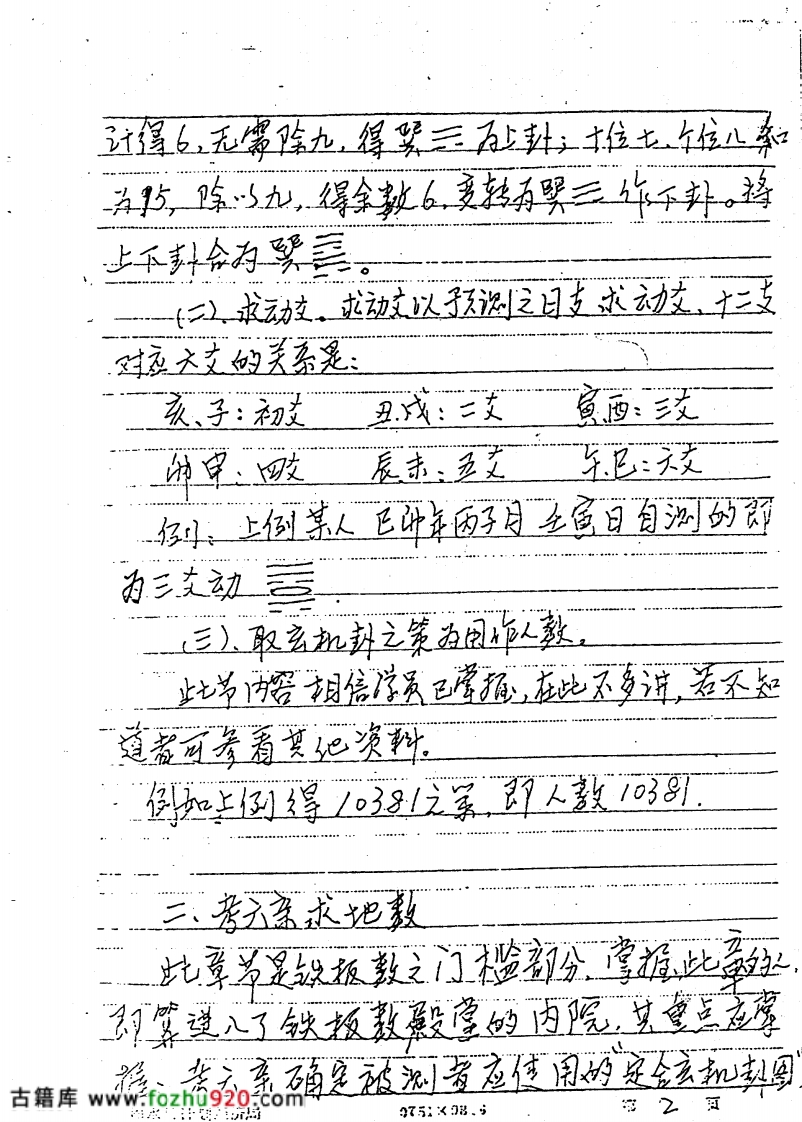 计得6,无需除九,得巽☴为上卦;十位七、个位八和
为15,除以九,得余数6,变转为巽☴作下卦。将
上下卦合为巽䷸。
(二)、求动爻。求动爻以预测之日支求动爻、十二支
对应六爻的关系是:
亥、子:初爻 丑、戌:二爻 寅酉:三爻
卯申:四爻 辰、未:五爻 午.巳:六爻
例:上例某人 己卯年丙子月壬寅日自测的即
为三爻动
(三)、取玄机卦之策为用作人数。
此节内容相信学员已掌握,在此不多讲,若不知
道者可参看其他资料。
例如上例得10381之策,即人数10381.
二、考六亲求地数
此章节是铁板数之门槛部分、掌握此章的人,
即算进入了铁板数殿堂的内院,其重点应掌
握、考六亲确定被测者应使用的"定合玄机卦图"
古籍库 www.fozhu920.com
0751×08.6 第 2 页